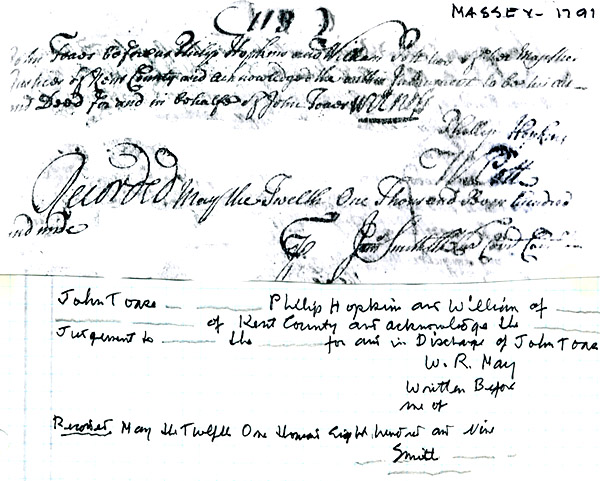 MASSEY - 1791
John Toaes before us Philip Hopkins and William Pott two of her Majties
Justices of Kent County and acknowledged the within Instrument to be his Act
and Deed for and in behalfe of John Toaes Witness
Phillip Hopkins
W Pott
Recorded May the Twelth One Thousand Seven hundred
and nine
Smith
John Toase Philip Hopkins and William of
of Kent County and acknowledge the
Judgement to the for and in Discharge of John Toase
W. R. May
Written Before
me of
Recorded May the Twelfth One thousand Eight hundred and Nine
Smith